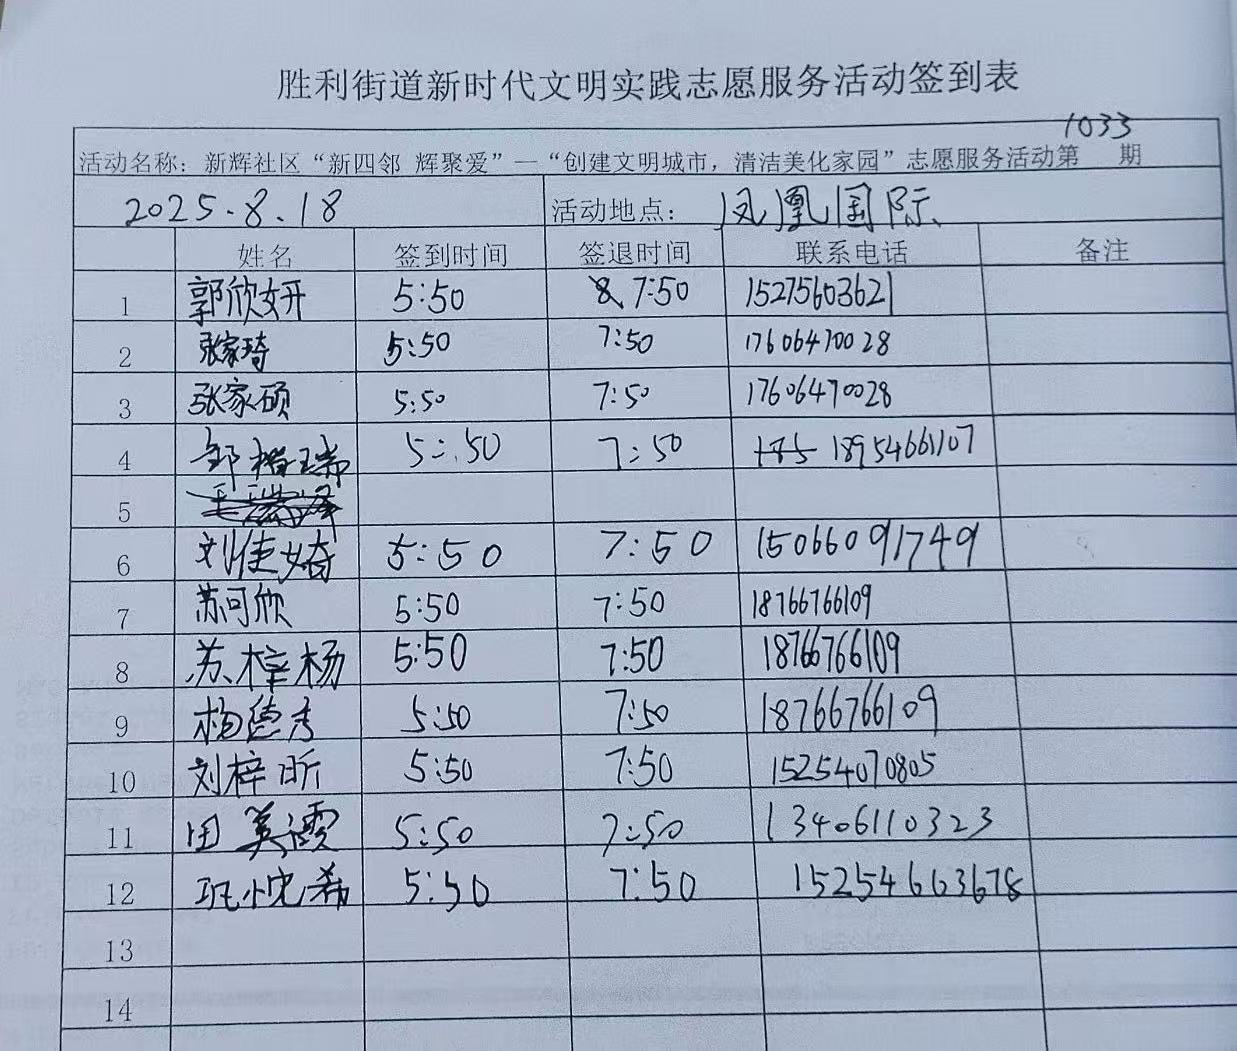 胜利街道新时代文明实践志愿服务活动签到表
1033
活动名称：新辉社区“新四邻 辉聚爱”—“创建文明城市，清洁美化家园”志愿服务活动第 期
2025.8.18 活动地点： 凤凰国际
姓名 签到时间 签退时间 联系电话 备注
1 郭欣妍 5:50 7:50 15275603621
2 张家琦 5:50 7:50 17606470028
3 张家硕 5:50 7:50 17606470028
4 邹梓瑞 5:50 7:50 185 18954661107
5
6 刘佳琦 5:50 7:50 15066091749
7 苏可欣 5:50 7:50 18766766109
8 苏梓杨 5:50 7:50 18766766109
9 杨德秀 5:50 7:50 18766766109
10 刘梓昕 5:50 7:50 15254070805
11 田英霞 5:50 7:50 13406110323
12 巩悦希 5:50 7:50 15254663678
13
14